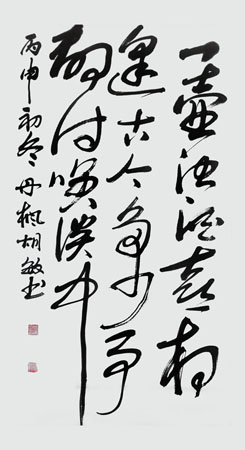 一壺浊酒喜相
逢古今多少事
都付咲谈中
丙申初冬丹楓胡敏书